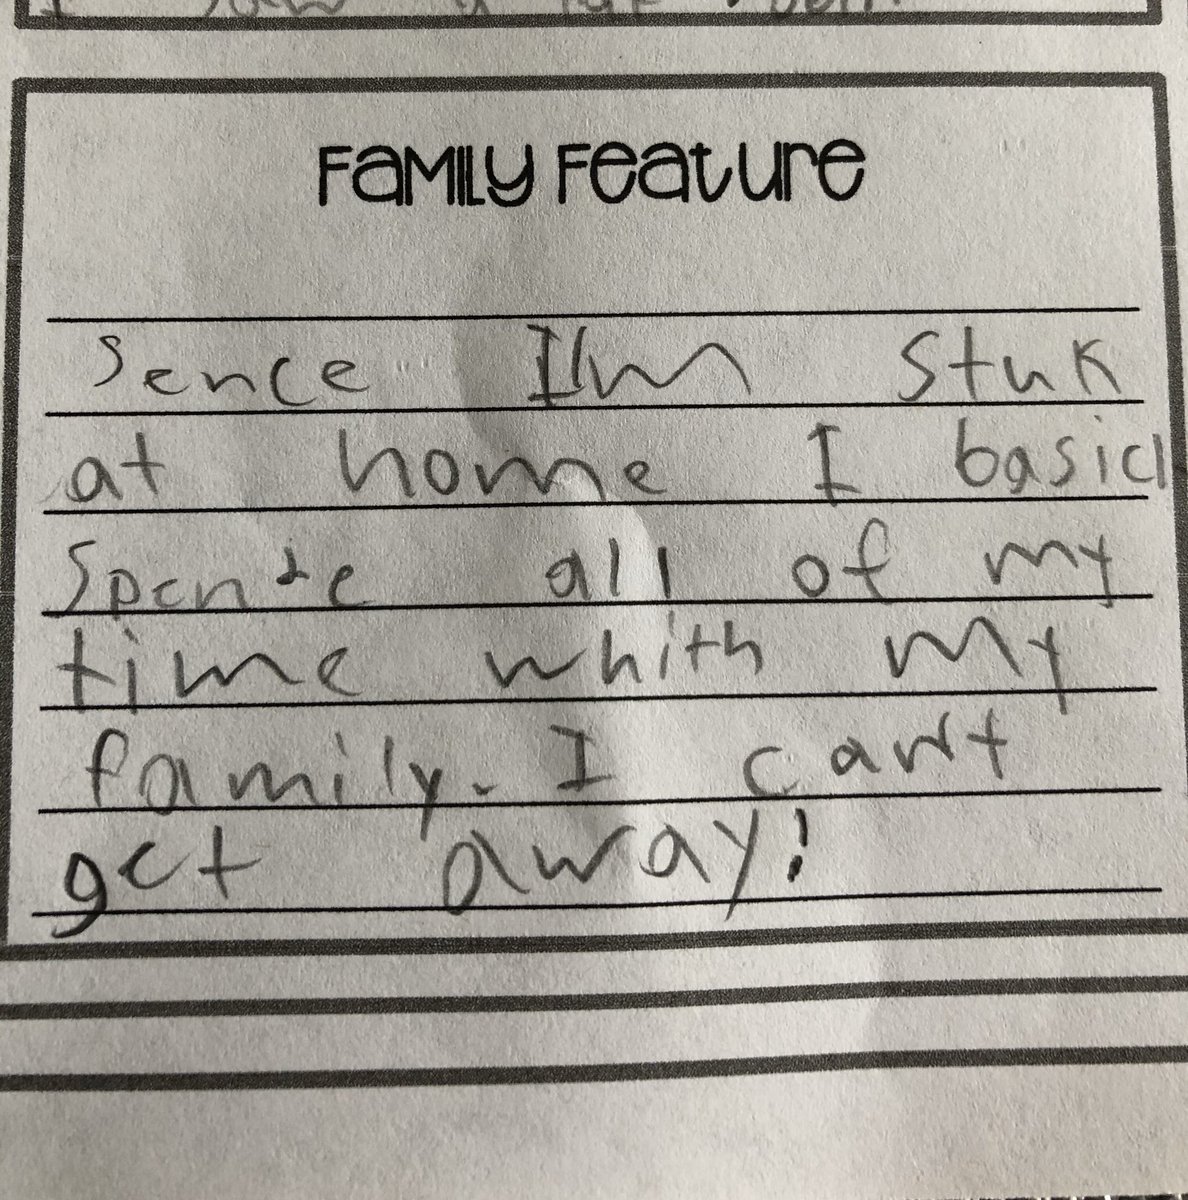 Family Feature
Sence I'm Stuk
at home I basicl
Spende all of my
time whith my
family. I can't
get away!